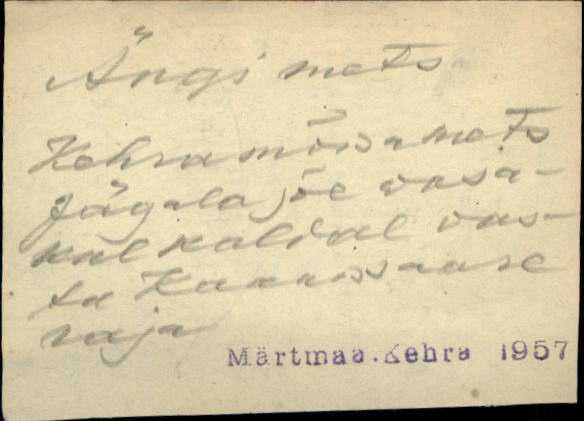 Ängi mets
Kehra mõisa mets
Jägala jõe vasa-
kal kaldal vas-
ta
raja
Märtmaa.Kehra 1957